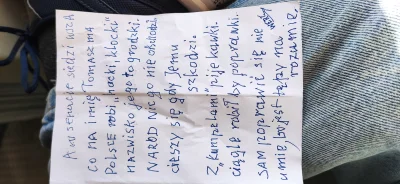 A w senacie siedzi wesz
co ma imię TOMASZ ma
Polsce robi „haćki, klocki"
NAZWISKO jego to grodzki.
NARÓD NIC go nie obchodzi
cieszy się gdy jemu
szkodzi.
Z „kumpelami" pije kawki.
ciągle robił by poprawki.
SAM poprawić się nie
umie, bo jest tępy na
rozumie,